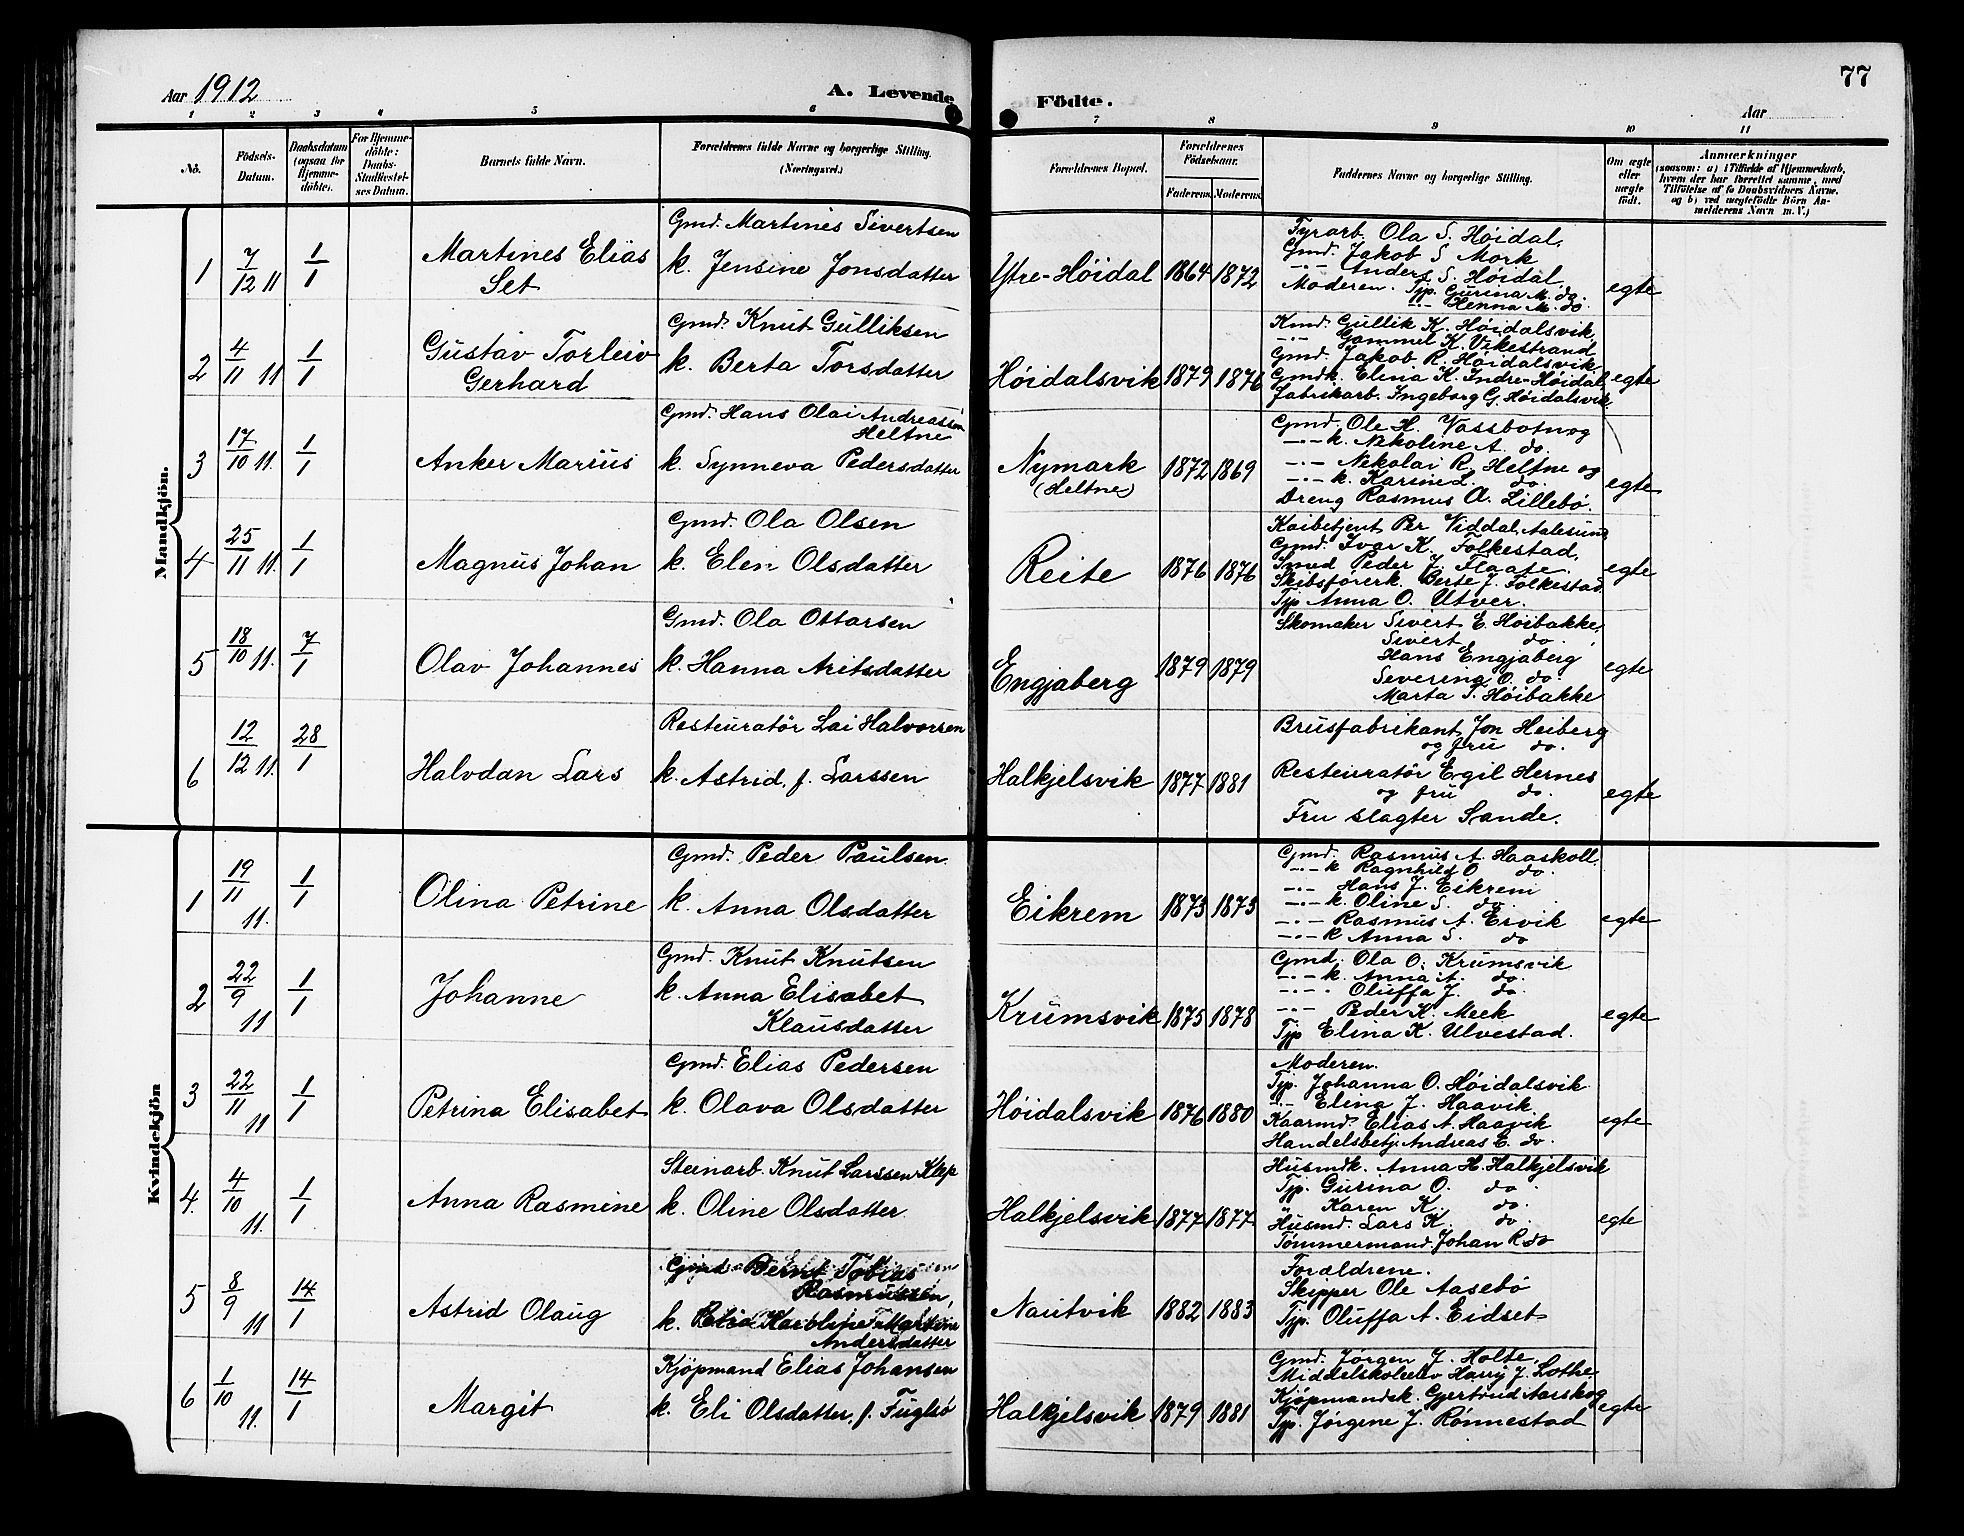 77
Aar 1912
A. Levende Födte.
Aar
1 2 3 4 5 6 7 8 9 10 11
No.
Födsels-Datum.
Daabsdatum (ogsaa for Hjemme-döbte).
For Hjemme-döbte: Daabs-Stadfæstel-ses Datum.
Barnets fulde Navn.
Forældrenes fulde Navne og borgerlige Stilling. (Næringsvei.)
Forældrenes Bopæl.
Forældrenes Födselsaar.
Faderens. Moderens.
Faddernes Navne og borgerlige Stilling.
Om ægte eller uægte födt.
Anmærkninger
(saasom: a) i Tilfælde af Hjemmedaab, hvem der har forrettet samme, med Tilföielse af to Daabsvidners Navne, og b) ved uægtefödte Börn An-melderens Navn m. V.)
Mandkjön.
1 7/12 11 1/1 Martines Elias Set
Gmd. Martines Sivertsen
k. Jensine Jonsdatter
Ytre-Höidal 1864 1872
Fyrarb. Ola S. Höidal,
Gmd. Jakob S Mork
-"- Anders S. Höidal
Moderen. Tjp. Gurina M. do.
-"- Henna M. do
egte
2 4/11 11 1/1 Gustav Torleiv Gerhard
Gmd. Knut Gulliksen
k. Berta Torsdatter
Höidalsvik 1879 1876
Kmd. Gullik K. Höidalsvik
-"- Gammel K. Vikestrand
Gmd. Jakob R. Höidalsvik
Gmdk. Elina K. Indre-Höidal,
Fabrikarb. Ingeborg G. Höidalsvik
egte
3 17/10 11. 1/1 Anker Marius
Gmd. Hans Olai Andreassen
Heltne
k. Synneva Pedersdatter
Nymark
(Heltne)
1872 1869
Gmd. Ole H. Vassbotn og
-"- k. Nekoline A. do.
-"- Nekolai R. Heltne og
-"- k. Karine L. do.
Dreng Rasmus A. Lillebö.
egte
4 25/11 11. 1/1 Magnus Johan
Gmd. Ola Olsen
k. Elen Olsdatter
Reite 1876 1876
Kaibetjent Per Viddal, Aalesund
Gmd. Ivar K. Folkestad,
Smed Peder J. Flaate.
Skibsförerk. Berte J. Folkestad.
Tjp Anna O. Utver.
egte
5 18/10 11. 7/1 Olav Johannes
Gmd. Ola Ottarsen
k. Hanna Aritsdatter
Engjaberg 1879 1879
Skomaker Sivert E. Höibakke,
Sivert do.
Hans Engjaberg
Severina O. do.
Marta S. Höibakke
egte
6 12/12 11. 28/1 Halvdan Lars
Restauratör Lai Halvorsen
k. Astrid, f. Larssen
Halkjelsvik 1877 1881
Brusfabrikant Jon Heiberg
og fru do.
Restauratör Egil Hernes
og fru do.
Fru slagter Sande.
egte
Kvindekjön
1 19/11 11. 1/1 Olina Petrine
Gmd. Peder Paulsen
k. Anna Olsdatter
Eikrem 1873 1873
Gmd. Rasmus A. Haaskoll
-"- k Ragnhild O do.
-"- Hans J. Eikrem
-"- k. Oline S. do.
-"- Rasmus A. Ervik
-"- k Anna S. do
egte
2 22/9 11 1/1 Johanne
Gmd. Knut Knutsen
k. Anna Elisabet
Klausdatter
Krumsvik 1875 1878
Gmd. Ola O. Krumsvik
-"- k. Anna A. do.
-"- Oluffa J. do.
-"- Peder K. Meek
Tjp Elina K. Ulvestad.
egte
3 22/11 11 1/1 Petrina Elisabet
Gmd. Elias Pedersen
k. Olava Olsdatter
Höidalsvik 1876 1880
Moderen.
Tjp. Johanna O. Höidalsvik
-"- Elina J. Haavik
Kaarmd. Elias A. Haavik
Handelsbetj. Andreas E. do.
egte
4. 4/10 11. 1/1 Anna Rasmine
Steinarb. Knut Larssen Klep
k. Oline Olsdatter.
Halkjelsvik 1877 1877
Husmdk. Anna H. Halkjelsvik
Tjp. Gurina O. do.
" Karen K. do.
Husmd. Lars K. do.
Tömmermand Johan R do
egte
5 8/9 11 14/1 Astrid Olaug
Gmd Bernt Tobias
Rasmussen,
k. Martine
Andersdatter
Nautvik 1882 1883
Forældrene.
Skipper Ole Aasebö
Tjp. Oluffa A. Eidset
6 1/10 11. 14/1 Margit
Kjöpmand Elias Johansen
k. Eli Olsdatter, f. Fuglsö
Halkjelsvik 1879 1881
Gmd. Jörgen J. Holte,
Middelskoleelev Harry J. Lothe
Kjöpmandsk. Gjertrud Aarskog
Tjp. Jörgine J. Rönnestad
egte